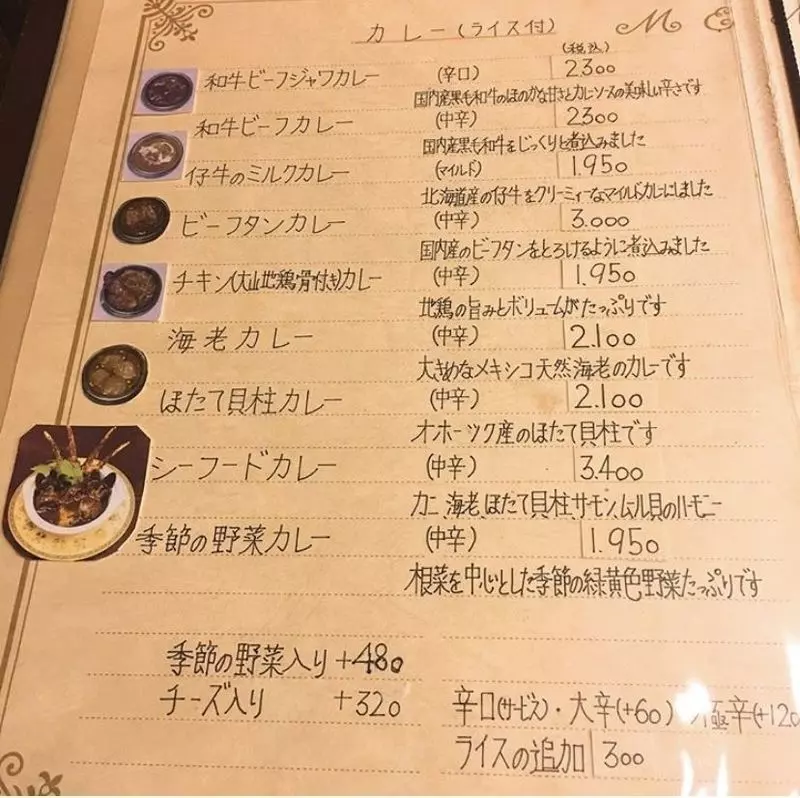 カレー(ライス付)
M E
(税込)
和牛ビーフジャワカレー (辛口) 2300
国内産黒毛和牛のほのかな甘さとカレーソースの美味しい辛さです
和牛ビーフカレー (中辛) 2300
国内産黒毛和牛をじっくりと煮込みました
仔牛のミルクカレー (マイルド) 1.950
北海道産の仔牛をクリーミィーなマイルドカレーにしました
ビーフタンカレー (中辛) 3.000
国内産のビーフタンをとろけるように煮込みました
チキン(大山地鶏骨付き)カレー (中辛) 1.950
地鶏の旨みとボリュームがたっぷりです
海老カレー (中辛) 2.100
大きめなメキシコ天然海老のカレーです
ほたて貝柱カレー (中辛) 2.100
オホーツク産のほたて貝柱です
シーフードカレー (中辛) 3.400
カニ、海老、ほたて貝柱、サーモン、ムール貝のハーモニー
季節の野菜カレー (中辛) 1.950
根菜を中心とした季節の緑黄色野菜たっぷりです
季節の野菜入り +480
チーズ入り +320
辛口(サービス)・大辛(+60) 極辛(+120
ライスの追加 300